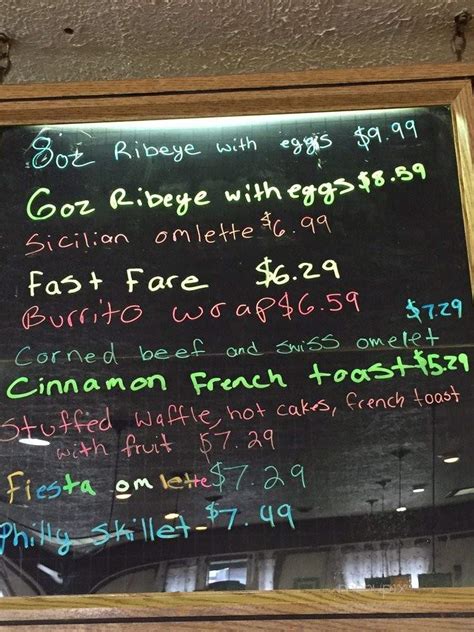 8oz Ribeye with eggs $9.99
6oz Ribeye with eggs $8.59
Sicilian omlette $6.99
Fast Fare $6.29
Burrito wrap $6.59
$7.29
Corned beef and swiss omelet
Cinnamon French toast $5.29
Stuffed Waffle, hot cakes, french toast
with fruit $7.29
Fiesta omlette $7.29
Philly Skillet - $7.49